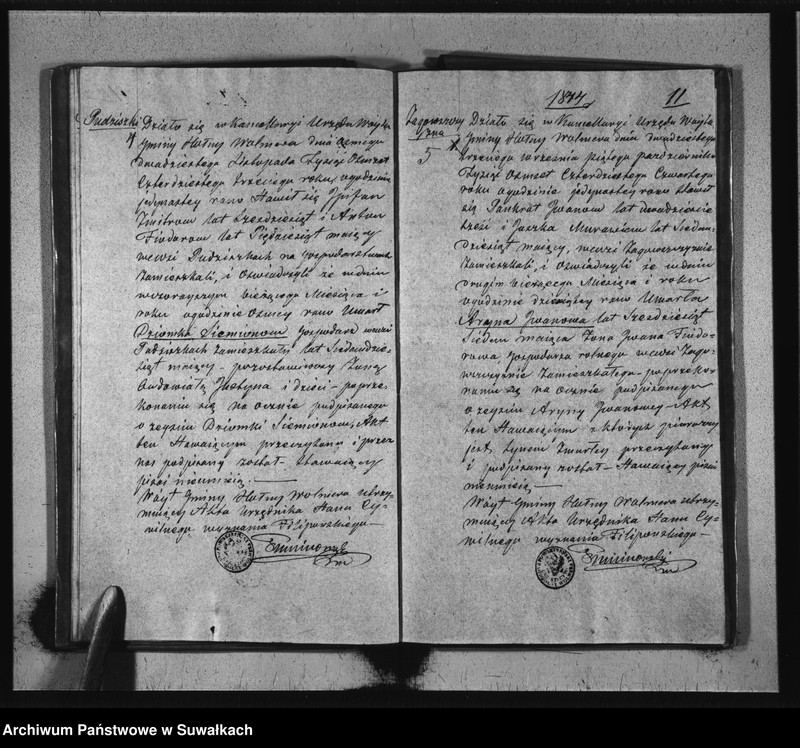 Pudziszki
4
Działo się w Kancellaryi Urzędu Wóyta
Gminy Hutny Wolmera dnia ósmego
dwudziestego Listopada Tysiąc Ośmset
Czterdziestego trzeciego roku, o godzinie
jedynastey rano Stawił się
lat Sześdziesiąt i
Fiodorow lat Piędziesiąt maiący
we wsi Pudziszkach na gospodarstwach
Zamieszkali, i Oświadczyli że w dniu
wczorayszym bieżącego Miesiąca i
roku o godzinie ósmey rano Umarł
Siemionow Gospodarz we wsi
Pudziszkach zamieszkały, lat Siedmdzie-
siąt maiący – pozostawiwszy Żonę
owdowiałą Justynę i dzieci – po prze-
konaniu się na ocznie podpisanego
o zeyściu Siemionow, Akt
ten Stawaiącym przeczytany i przez
nas podpisany został – Stawaiący
pisać nieumieią. –
Wóyt Gminy Hutny Wolmera utrzy-
muiący Akta Urzędnika Stanu Cy-
wilnego wyznania Filipowskiego –
1844
11
5
Działo się w Kancellaryi Urzędu Wóyta
Gminy Hutny Wolmera dnia dwudziestego
trzeciego września piątego października
Tysiąc Ośmset Czterdziestego Czwartego
roku o godzinie jedynastey rano Stawił
się Pankrat Iwanow lat dwadzieścia
sześć i lat Siedm-
dziesiąt maiący, we wsi
Zamieszkali, i Oświadczyli że w dniu
drugim bieżącego Miesiąca i roku
o godzinie dziewiątey rano Umarła
Aryna Iwanowa lat Sześdziesiąt
Siedm maiąca Żona Iwana Fiodo-
rowa Gospodarza rolnego we wsi
zamieszkałego – po przeko-
naniu się na ocznie podpisanego
o zeyściu Aryny Iwanowey – Akt
ten Stawaiącym z których pierwszy
jest Synem Zmarłey przeczytany
i podpisany został – Stawaiący pisać
nieumieią –
Wóyt Gminy Hutny Wolmera utrzy-
muiący Akta Urzędnika Stanu Cy-
wilnego wyznania Filipowskiego –
Archiwum Państwowe w Suwałkach